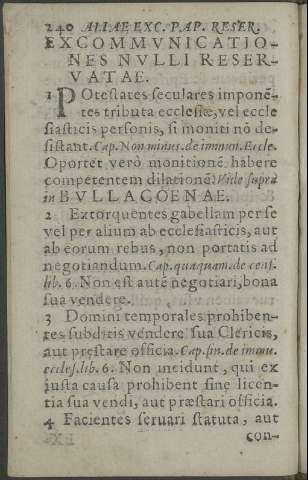 240 ALIAE EXC. PAP. RESER.
EXCOMMVNICATIO-
NES NVLLI RESER-
VATAE.
1 POtestates seculares imponẽ-
tes tributa ecclesiæ, vel eccle
siasticis personis, si moniti nõ de-
sistant. Cap. Non minus. de immun. Eccle.
Oportet verò monitionẽ habere
competentem dilationẽ. Vide suprà
in BVLLA COENAE.
2 Extorquentes gabellam per se
vel per alium ab ecclesiasticis, aut
ab eorum rebus, non portatis ad
negotiandum. Cap. quaquam. de cens.
lib. 6. Non est autẽ negotiari, bona
sua vendere.
3 Domini temporales prohiben-
tes subditis vendere sua Clericis,
aut præstare officia. Cap. fin. de immu.
eccles. lib. 6. Non incidunt, qui ex
iusta causa prohibent sine licen-
tia sua vendi, aut præstari officia.
4 Facientes seruari statuta, aut
con-